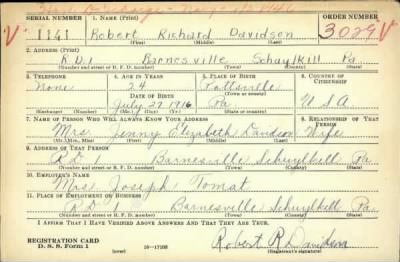 SERIAL NUMBER 1. NAME (Print) ORDER NUMBER
V 1141 Robert Richard Davidson 3029 V
(First) (Middle) (Last)
2. ADDRESS (Print)
R D 1 Barnesville Schuylkill Pa
(Number and street or R. F. D. number) (Town) (County) (State)
3. TELEPHONE 4. AGE IN YEARS 5. PLACE OF BIRTH 6. COUNTRY OF CITIZENSHIP
None 24 Pottsville
DATE OF BIRTH (Town or county)
July 27 1916 Pa. U S A
(Mo.) (Day) (Yr.) (State or country)
7. NAME OF PERSON WHO WILL ALWAYS KNOW YOUR ADDRESS 8. RELATIONSHIP OF THAT PERSON
Mrs. Jenny Elizabeth Davidson Wife
(Mr., Mrs., Miss) (First) (Middle) (Last)
9. ADDRESS OF THAT PERSON
R D 1 Barnesville Schuylkill Pa
(Number and street or R. F. D. number) (Town) (County) (State)
10. EMPLOYER'S NAME
Mrs Joseph Tomat
11. PLACE OF EMPLOYMENT OR BUSINESS
R D 1 Barnesville Schuylkill Pa.
(Number and street or R. F. D. number) (Town) (County) (State)
I AFFIRM THAT I HAVE VERIFIED ABOVE ANSWERS AND THAT THEY ARE TRUE.
REGISTRATION CARD
D. S. S. Form 1 (over) 16—17105 Robert R Davidson
(Registrant's signature)